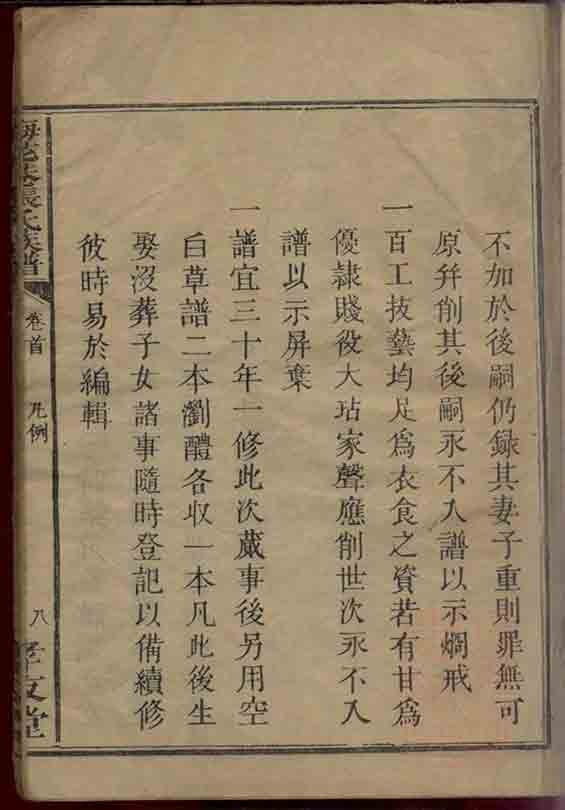 不加於後嗣仍録其妻子重則罪無可
原并削其後嗣永不入譜以示烱戒
一百工技藝均足爲衣食之資若有甘爲
優隸賤役大玷家聲應削世次永不入
譜以示屏棄
一譜宜三十年一修此次蕆事後另用空
白草譜二本瀏醴各收一本凡此後生
娶沒葬子女諸事隨時登記以備續修
彼時易於編輯
張氏族譜
卷首
凡例
八
孝友堂